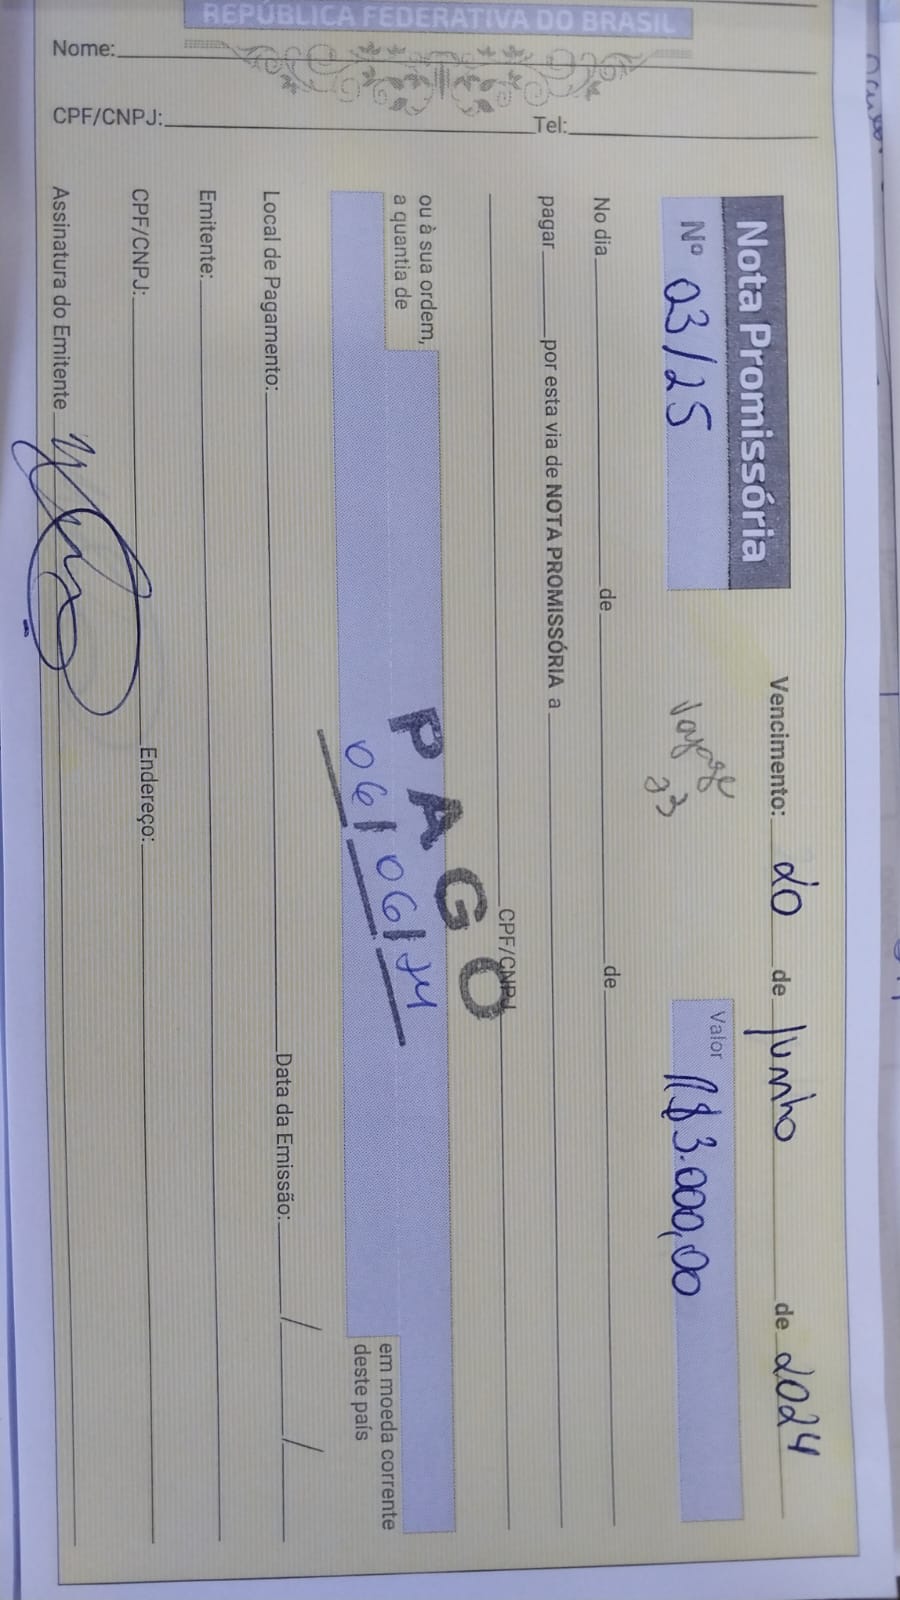 REPÚBLICA FEDERATIVA DO BRASIL
Nome:
CPF/CNPJ:
Tel:
Nota Promissória
Vencimento: 20 de Junho de 2024
Nº 03/25
Voyage
23
Valor
R$ 3.000,00
No dia de de
pagar por esta via de NOTA PROMISSÓRIA a
CPF/CNPJ
ou à sua ordem,
a quantia de
PAGO
06/06/24
em moeda corrente
deste país
Local de Pagamento: Data da Emissão: / /
Emitente:
CPF/CNPJ: Endereço:
Assinatura do Emitente